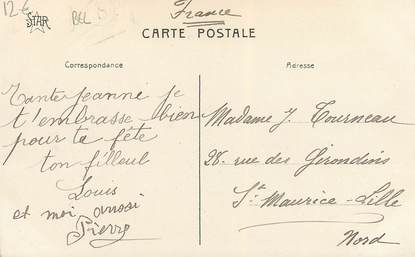 12 €
STAR
France
CARTE POSTALE
Correspondance
Adresse
Tante Jeanne je
t'embrasse bien
pour ta fête
ton filleul
Louis
et moi aussi
Pierre
Madame J. Tourneau
28. rue des Girondins
St Maurice-Lille
Nord